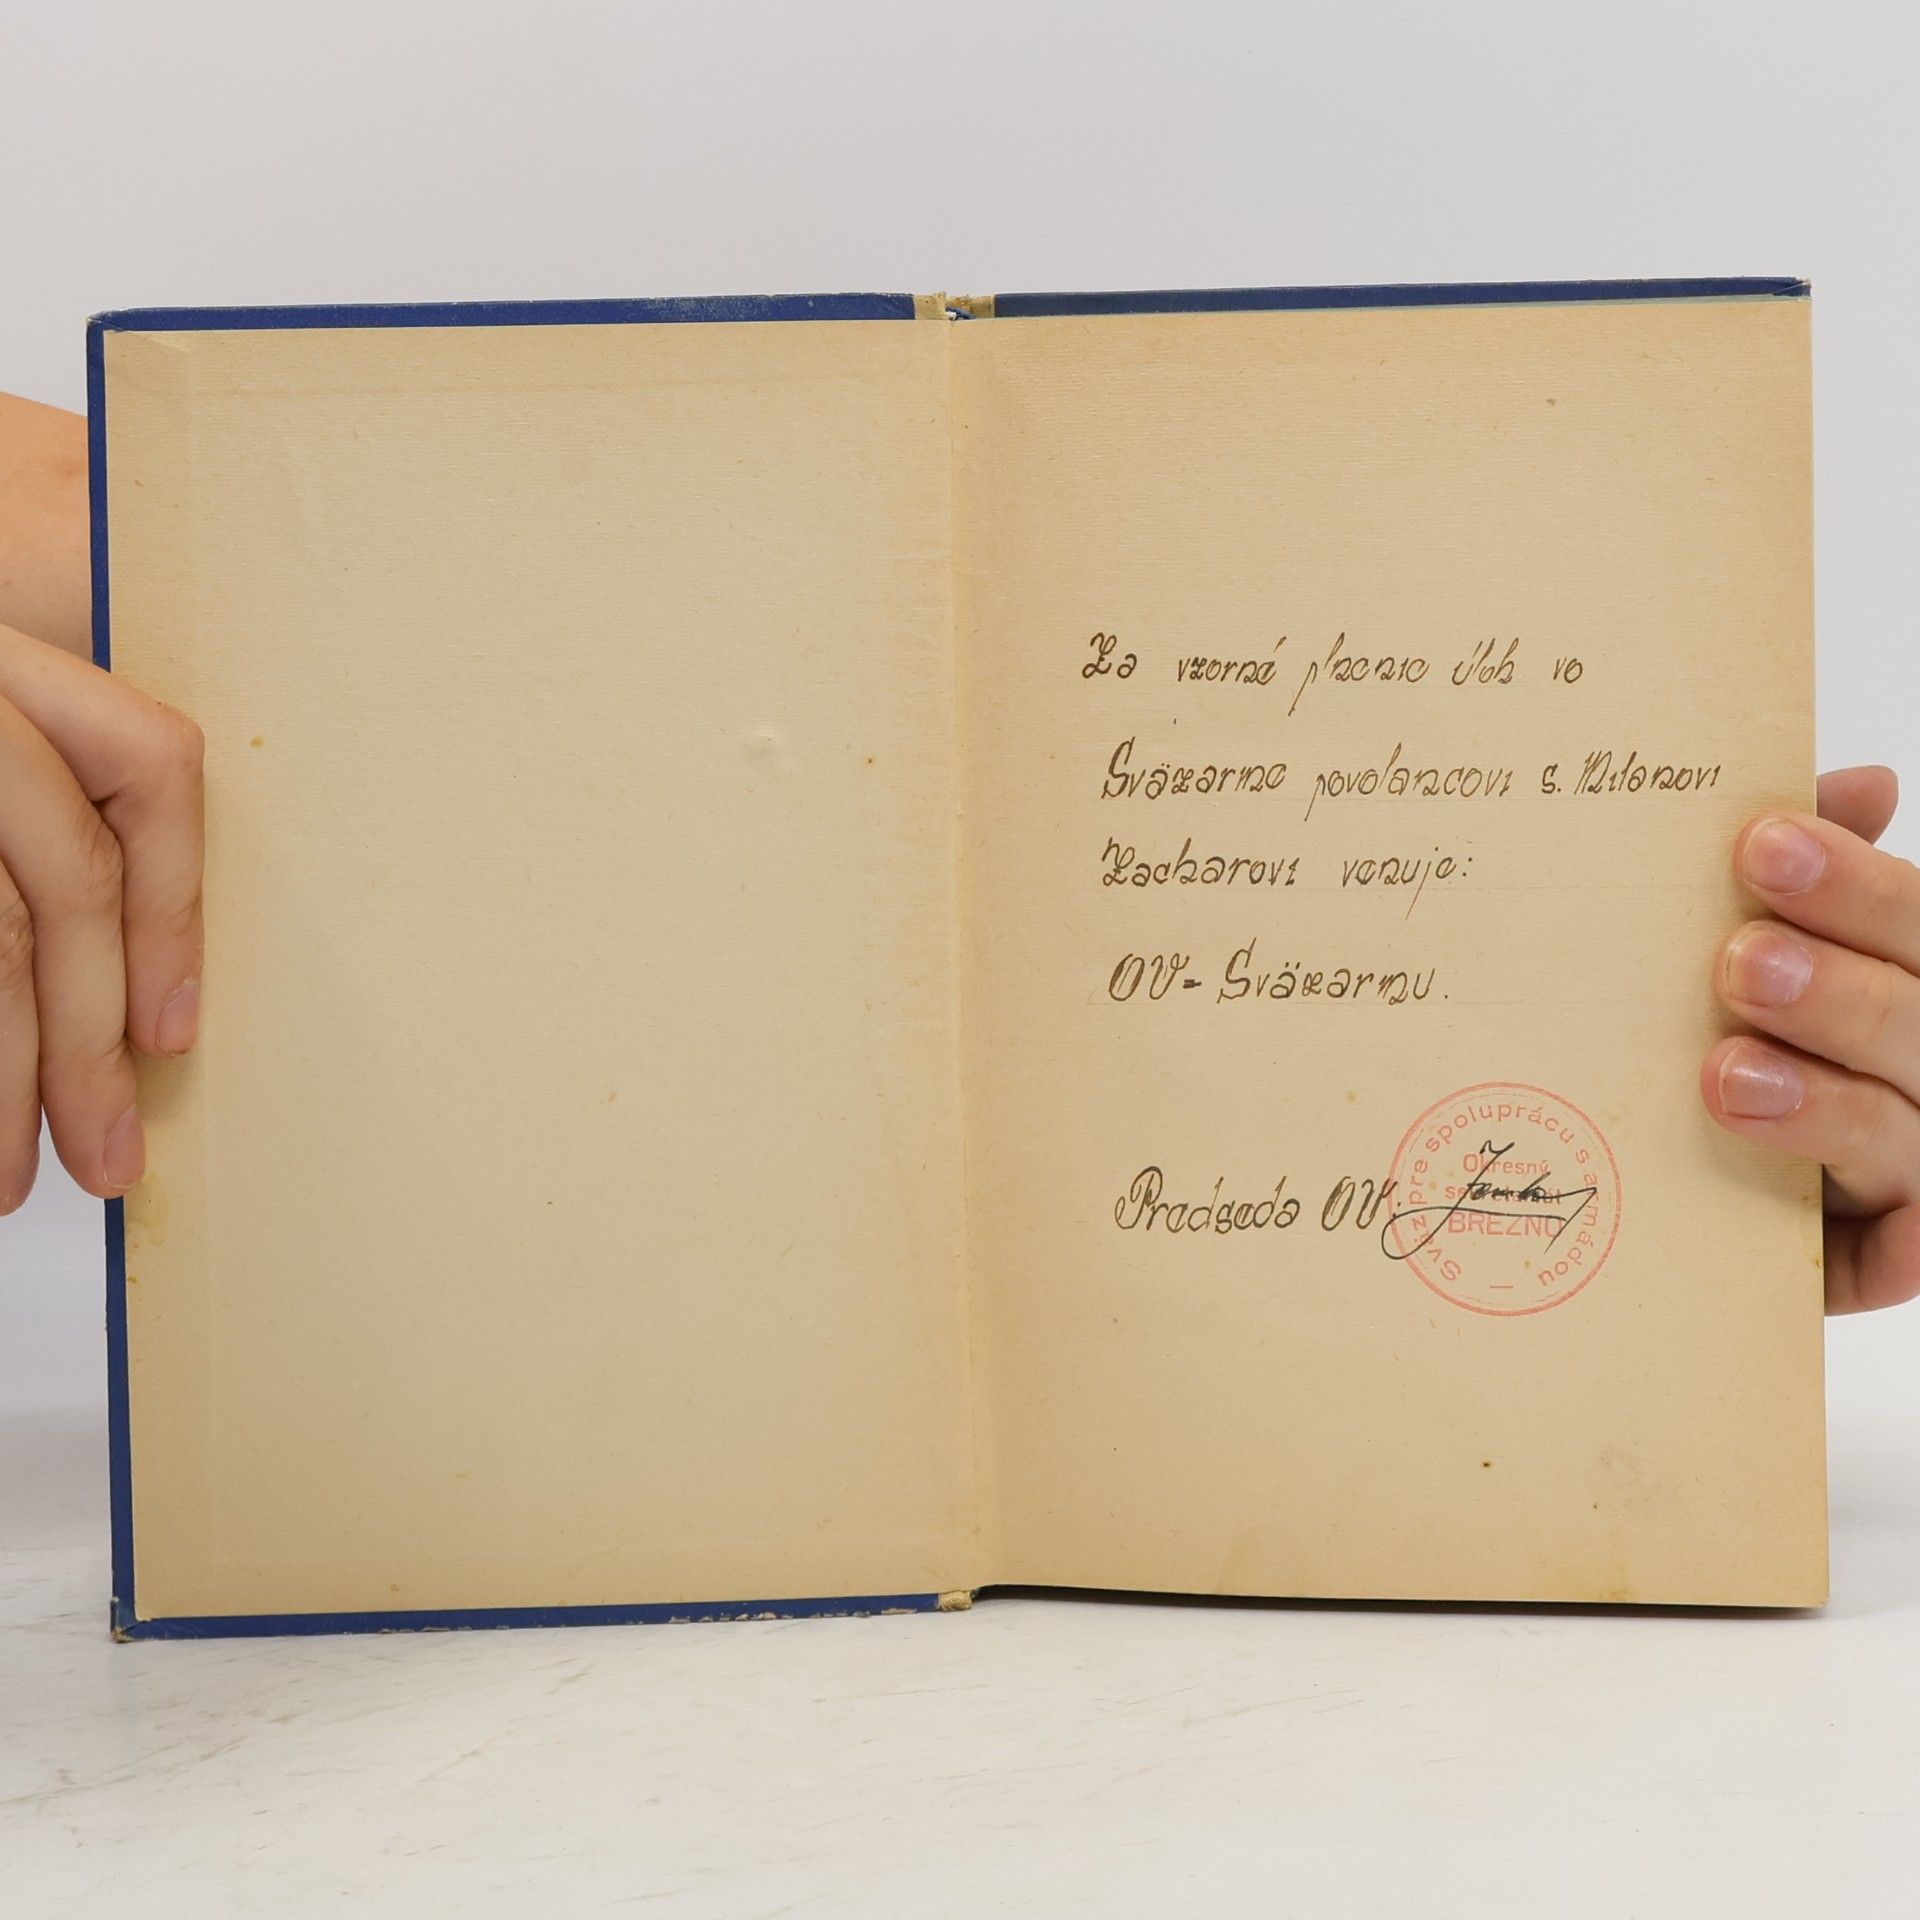 Za vzorné plnenie úloh vo
Sväzarme povolancovi s. Milanovi
Zacharovi venuje:
OV- Sväzarmu.
Predseda OV:
Sväz pre spoluprácu s armádou
Okresný
sekretariát
BREZNO